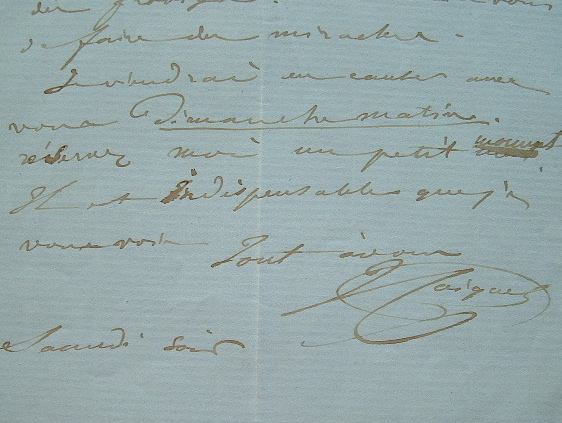 du vous
de faire des miracles.
Je viendrai en causer avec
vous Dimanche matin.
réservez moi un petit moment
Il est indispensable que j'
vous voir Tout à vous
Samedi soir